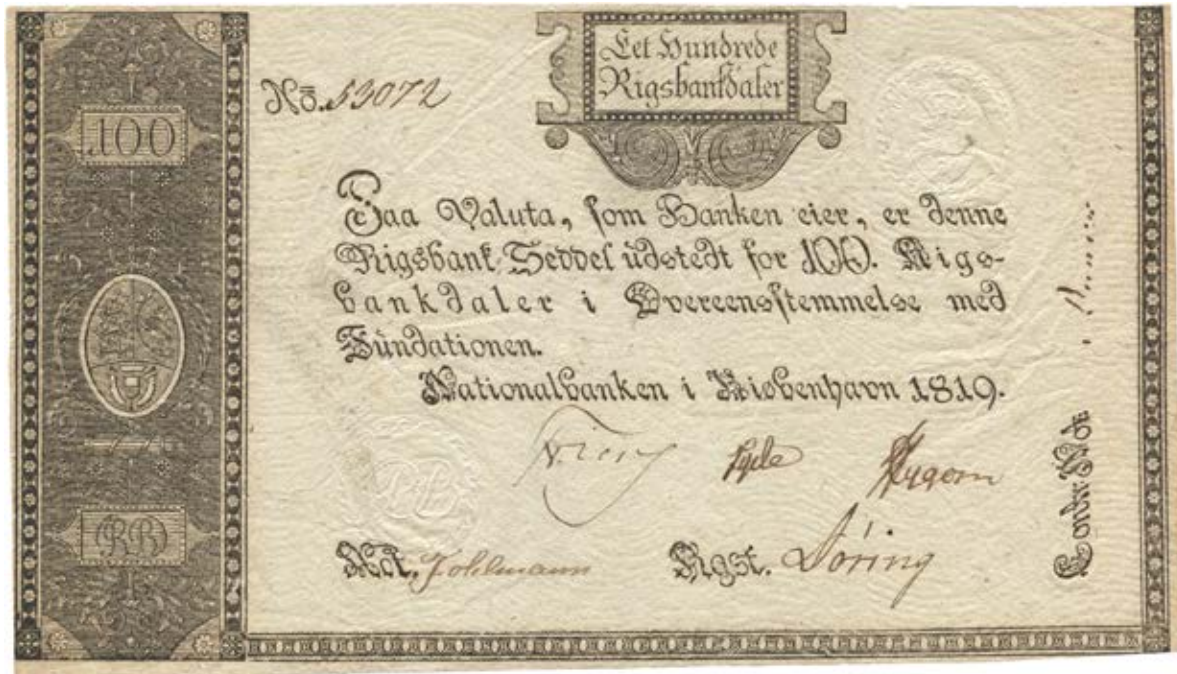 Eet Hundrede
Rigsbankdaler
No. 53072
100
Paa Valuta, som Banken eier, er denne
Rigsbank-Seddel udstedt for 100. Rigs-
bankdaler i Overeensstemmelse med
Fundationen.
Nationalbanken i Kiøbenhavn 1819.
Not.
Rgst. Döring
RB
RB